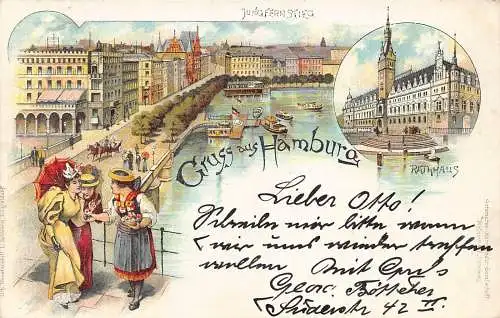 JUNGFERNSTIEG
Gruss aus Hamburg
RATHHAUS
Lieber Otto!
Schreibe mir bitte wann
wir uns wieder treffen
wollen. Mit Gruß
Georg Böttcher
Süderstr 42 III